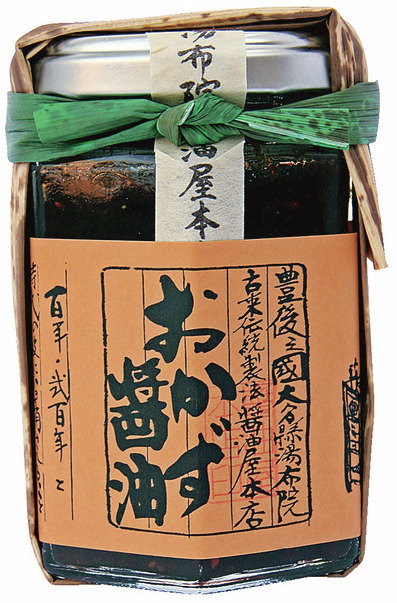 湯布院
油屋本
豊後之國大分縣湯布院
古来伝統製法醤油屋本店
おかず
醤油
百年・弐百年と